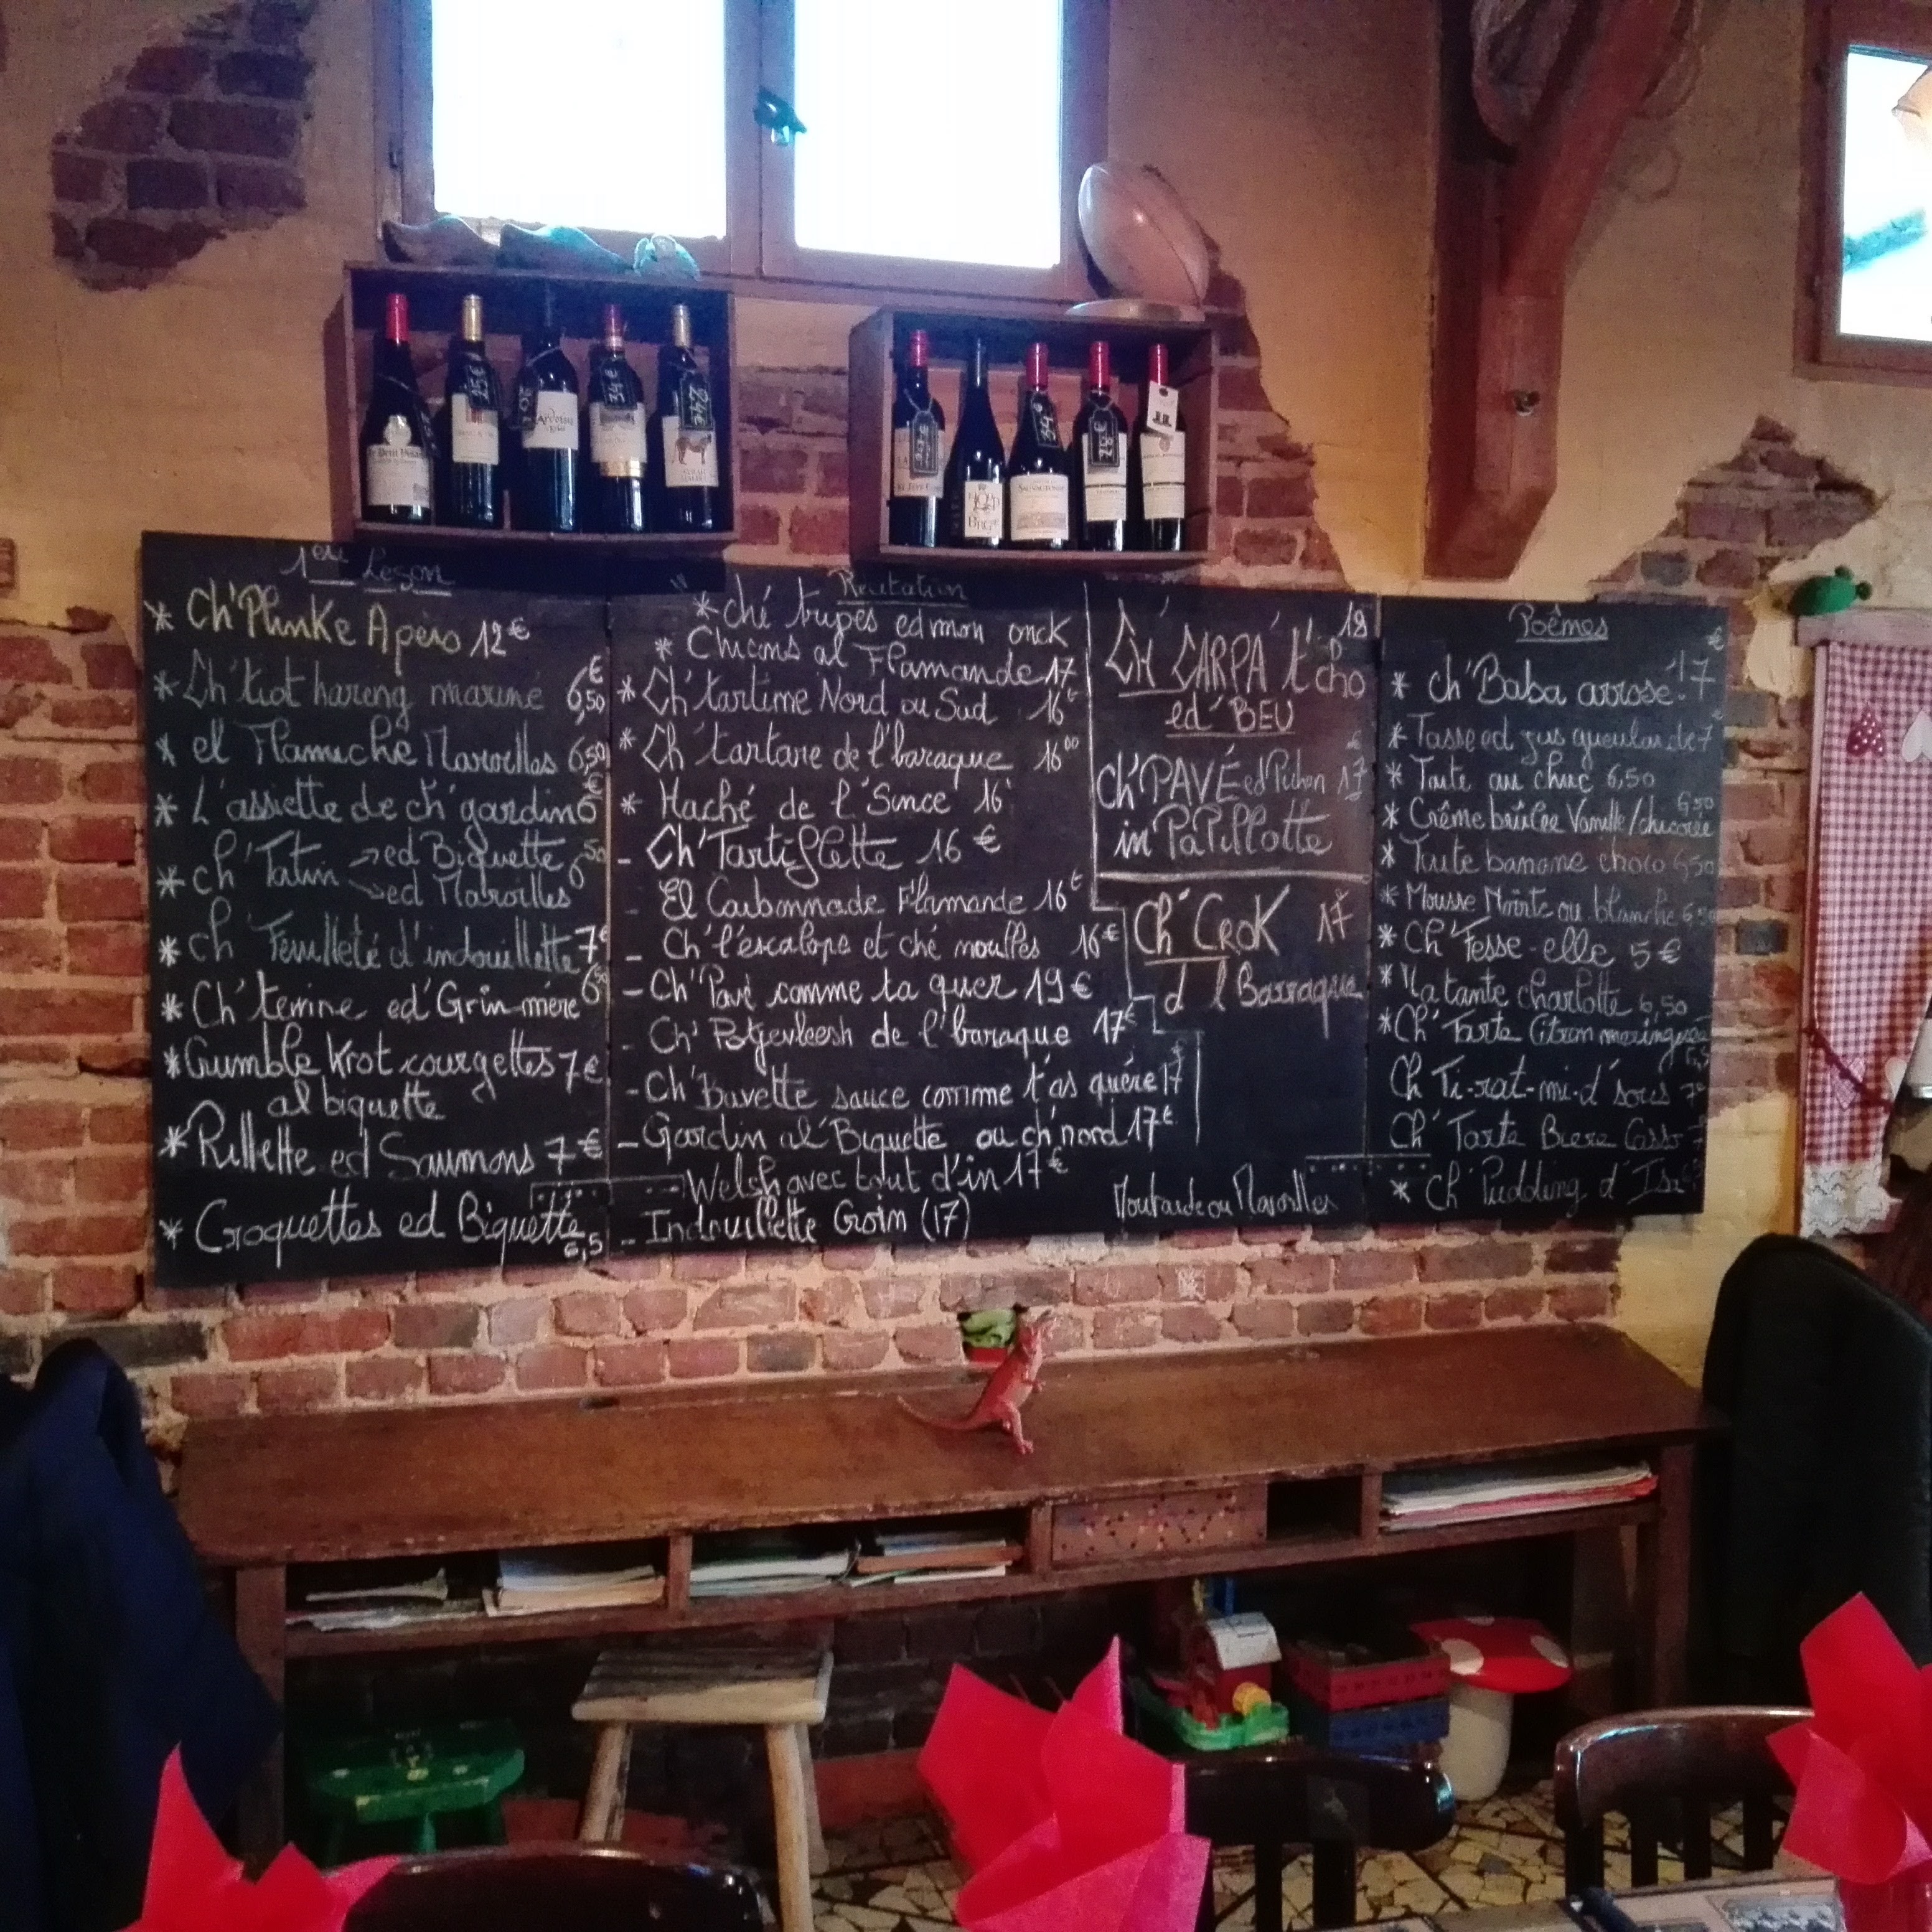 25€
34€
24€
34€
28€
1ère Leson
* Ch'Plinke Apéro 12€
* Ch'tiot hareng mariné 6,50
* el Flamiche Maroilles 6,50
* L'assiette de ch'gardin 6
* ch' Tatin → ed Biquette 6,50
→ ed Maroilles
* ch' Feuilleté d'indouillette 7€
* Ch' terrine ed' Grin-mère 6,50
* Crumble Krot courgettes 7€
al biquette
* Rillette ed Saumons 7€
* Croquettes ed Biquette
6,5
Récitation
* ché tripes ed mon onck
* Chicons al Flamande 17
* Ch'tartine Nord ou Sud 16€
* Ch'tartare de l'baraque 16
* Haché de l'Since 16
- Ch'Tartiflette 16€
- El Carbonnade Flamande 16€
- Ch'l'escalope et ché moulles 16€
- Ch'Pavé comme ta quer 19€
- Ch'Potjevleesh de l'baraque 17€
- Ch'Bavette sauce comme t'as quére 17€
- Gardin al'Biquette ou ch'nord 17€
- Welsh avec tout d'in 17€
- Indouillette Goin (17)
Moutarde ou Maroilles
Ch' CARPA't'cho 18
ed' BEU
ch'PAVÉ ed Pichon 17€
in PaPillotte
Ch' Crok 17€
d l Barraque
Poêmes
* ch'Baba arrosé 7€
* Tasse ed jus gueularde 7€
* Tarte au chuc 6,50
* Crême brûlée Vanille/chicorée 6,50
* Tarte banane choco 6,50
* Mousse Noirte ou blanche 6,50
* Ch'Fesse-elle 5€
* Ma tante charlotte 6,50
* Ch' Tarte Citron meringuée
6,5
Ch Ti-rat-mi-d'sous 7€
Ch' Tarte Biere Casso 7
* Ch' Pudding d'Isa